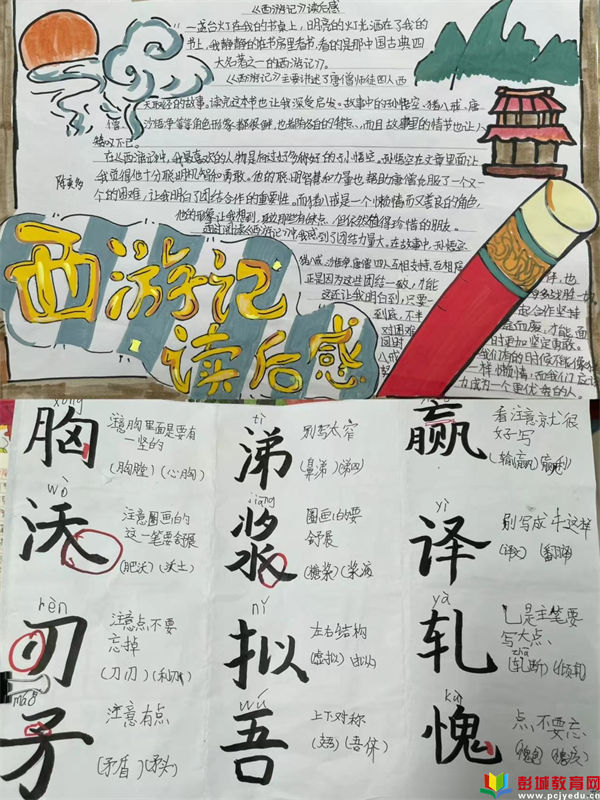 《西游记》读后感
一盏台灯在我的书桌上，明亮的灯光洒在了我的
书上，我静静的在书房里看书，看的是那中国古典四
大名著之一的《西游记》。
《西游记》主要讲述了唐僧师徒四人西
天取经的故事，读完这本书也让我深受启发。故事中的孙悟空、猪八戒、唐
僧、沙悟净等等角色形象都很鲜，也都有各自的特点，而且故事里的情节也让人
在《西游记》中，我最喜欢的人物是神通广大的孙悟空。孙悟空在文章里面让
我觉得他十分聪明机智和勇敢。他的聪明智慧和力量也帮助唐僧克服了一个又一
个的困难，让我明白了团结合作的重要性。而猪八戒是一个懒惰而又善良的角色，
他的形象让我想到，
但依然值得珍惜的朋友。
通过阅读《西游记》我感到了团结力量大，在故事中，孙悟空
猪八戒、沙悟净、唐僧四人互相支持、互相
正是因为这些团结一致，才能
这还让我明白到，只要
到底，不半
对困难
西游记
读后感
合作坚持
才能面
时更加坚定勇敢。
我们有的时候不能像
一样懒惰，而我们应
力成为一个更优秀的人
胸
注意胸里面是要有
一竖的
(胸膛) (心胸)
tì
涕
别写太窄
(鼻涕)
赢
看注意就很
好写
(输赢) (赢利)
wò
沃
注意圈画的
这一笔要舒展
(肥沃) (沃土)
jiāng
浆
圈画的要
舒展
(糖浆) (浆液)
yì
译
别写成牛这样
(译文) (翻译)
rèn
刃
注意点不要
忘掉
(刀刃) (利刃)
nǐ
拟
左右结构
(虚拟)
yà
轧
乚是主笔要
写大点
zhá
(轧断) (倾轧)
máo
矛
注意有点
(矛盾) (矛头)
wú
吾
上下对称
(吾休)
kuì
愧
点不要忘
彭城教育网
www.pcjyedu.cn